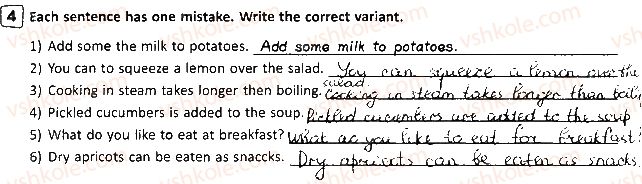 4 Each sentence has one mistake. Write the correct variant.
1) Add some the milk to potatoes. Add some milk to potatoes.
2) You can to squeeze a lemon over the salad. You can squeeze a lemon over the
salad.
3) Cooking in steam takes longer then boiling. Cooking in steam takes longer than boiling
4) Pickled cucumbers is added to the soup. Pickled cucumbers are added to the soup.
5) What do you like to eat at breakfast? What do you like to eat for breakfast?
6) Dry apricots can be eaten as snaccks. Dry apricots can be eaten as snacks.
vshkole.com